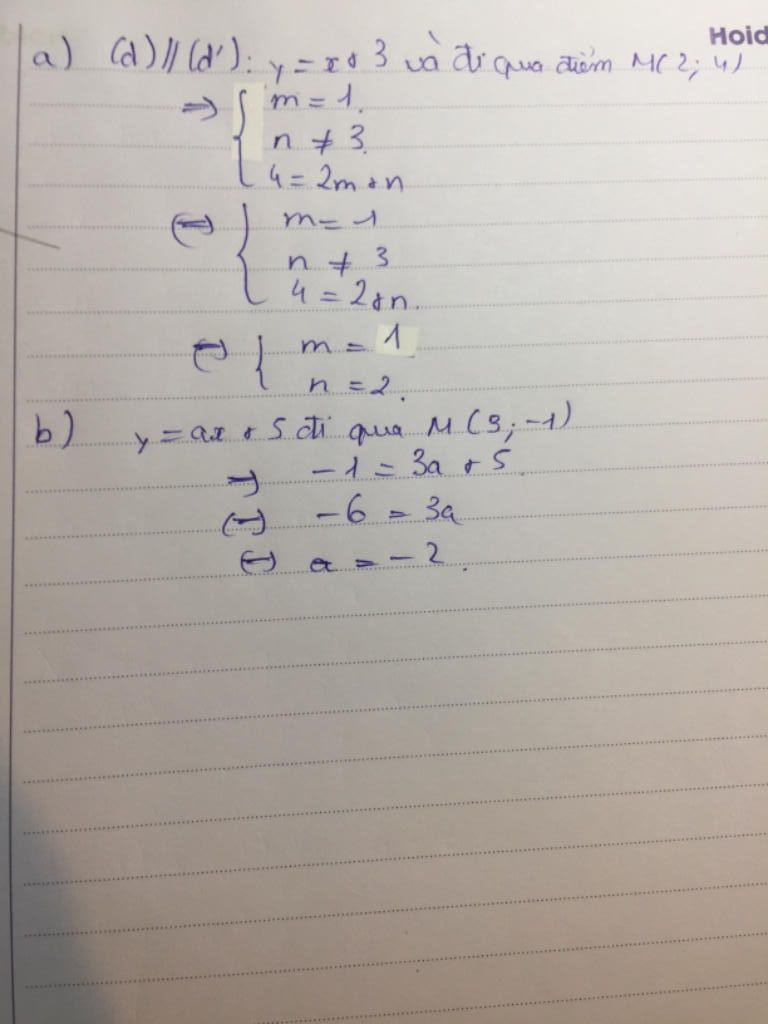 Hoid
a) (d)//(d'): y = x + 3 và đi qua điểm M(2; 4)
=> { m = 1.
n ≠ 3.
4 = 2m + n
<=> { m = 1
n ≠ 3
4 = 2 + n.
<=> { m = 1
n = 2.
b) y = ax + 5 đi qua M(3; -1)
=> -1 = 3a + 5.
<=> -6 = 3a
<=> a = -2.